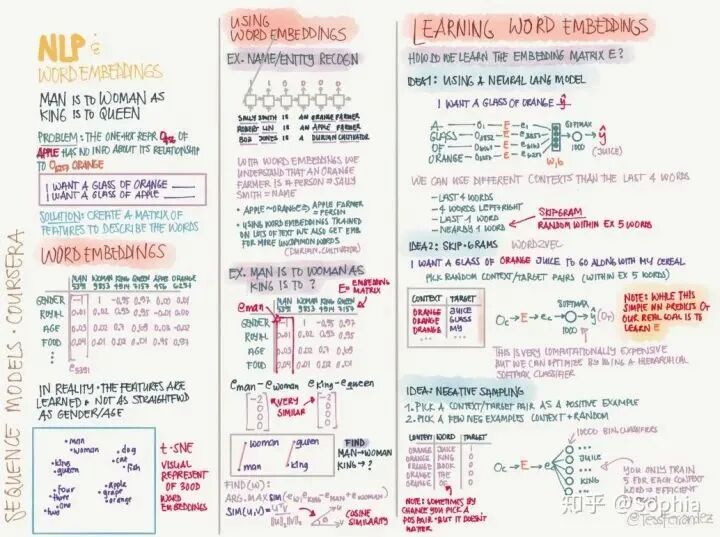 SEQUENCE MODELS · COURSERA
NLP &
WORD EMBEDDINGS
MAN IS TO WOMAN AS
KING IS TO QUEEN
PROBLEM: THE ONE-HOT REPR. OF
APPLE HAS NO INFO ABOUT ITS RELATIONSHIP
TO ORANGE
I WANT A GLASS OF ORANGE ____
I WANT A GLASS OF APPLE ____
SOLUTION: CREATE A MATRIX OF
FEATURES TO DESCRIBE THE WORDS
WORD EMBEDDINGS
MAN WOMAN KING QUEEN APPLE ORANGE
5391 9853 4914 7157 456 6257
GENDER -1 1 -0.95 0.97 0.00 0.01
ROYAL 0.01 0.02 0.93 0.95 -0.01 0.00
AGE 0.03 0.02 0.7 0.69 0.03 -0.02
FOOD 0.04 0.01 0.02 0.01 0.95 0.97
e5391
IN REALITY · THE FEATURES ARE
LEARNED & NOT AS STRAIGHTFWD
AS GENDER/AGE
man
woman
dog
cat
fish
king
queen
four
three
one
two
apple
grape
orange
t-SNE
VISUAL
REPRESENT
OF 300D
WORD
EMBEDDINGS
USING
WORD EMBEDDINGS
EX. NAME/ENTITY RECOGN
1 1 0 0 0 0
SALLY SMITH IS AN ORANGE FARMER
ROBERT LIN IS AN APPLE FARMER
BOB JONES IS A DURIAN CULTIVATOR
WITH WORD EMBEDDINGS WE
UNDERSTAND THAT AN ORANGE
FARMER IS A PERSON ⇒ SALLY
SMITH = NAME
• APPLE ~ ORANGE ⇒ APPLE FARMER
= PERSON
• USING WORD EMBEDDINGS TRAINED
ON LOTS OF TEXT WE ALSO GET EMB
FOR MORE UNCOMMON WORDS
(DURIAN, CULTIVATOR)
EX. MAN IS TO WOMAN AS
KING IS TO ?
E = EMBEDDING
MATRIX
eman
MAN WOMAN KING QUEEN
5391 9853 4914 7157
GENDER -1 1 -0.95 0.97
ROYAL 0.01 0.02 0.93 0.95
AGE 0.03 0.02 0.7 0.69
FOOD 0.04 0.01 0.02 0.01
eman - ewoman eking - equeen
-2 0 0 0
VERY
SIMILAR
-2 0 0 0
woman
man
queen
king
FIND
MAN→WOMAN
KING→?
FIND(W):
ARG.MAX SIM(ew, eking - eman + ewoman)
SIM(u,v) = uᵀv / ‖u‖₂‖v‖₂
COSINE
SIMILARITY
LEARNING WORD EMBEDDINGS
HOW DO WE LEARN THE EMBEDDING MATRIX E?
IDEA1: USING A NEURAL LANG MODEL
I WANT A GLASS OF ORANGE ŷ
A
GLASS
OF
ORANGE
E
SOFTMAX
ŷ
(JUICE)
W,b
WE CAN USE DIFFERENT CONTEXTS THAN THE LAST 4 WORDS
- LAST 4 WORDS
- 4 WORDS LEFT/RIGHT
- LAST 1 WORD
- NEARBY 1 WORD
SKIPGRAM
RANDOM WITHIN EX 5 WORDS
IDEA2: SKIP-GRAMS WORD2VEC
I WANT A GLASS OF ORANGE JUICE TO GO ALONG WITH MY CEREAL
PICK RANDOM CONTEXT/TARGET PAIRS (WITHIN EX 5 WORDS)
CONTEXT TARGET
ORANGE JUICE
ORANGE GLASS
ORANGE MY
...
Oc → E → ec → SOFTMAX → ŷ (Ot)
NOTE: WHILE THIS
SIMPLE NN PREDICTS Ot
OUR REAL GOAL IS TO
LEARN E
THIS IS VERY COMPUTATIONALLY EXPENSIVE
BUT WE CAN OPTIMIZE BY USING A HIERARCHICAL
SOFTMAX CLASSIFIER
IDEA: NEGATIVE SAMPLING
1. PICK A CONTEXT/TARGET PAIR AS A POSITIVE EXAMPLE
2. PICK A FEW NEG EXAMPLES CONTEXT + RANDOM
CONTEXT WORD TARGET
ORANGE JUICE 1
ORANGE KING 0
ORANGE BOOK 0
ORANGE THE 0
ORANGE OF 0
NOTE: SOMETIMES BY
CHANCE YOU PICK A
POS PAIR - BUT IT DOESN'T
MATTER
10000 BIN. CLASSIFIERS
Oc → E → ec
JUICE
KING
YOU ONLY TRAIN
5 FOR EACH CONTEXT
WORD ⇒ EFFICIENT
知乎 @Sophia
@TessFerrandez